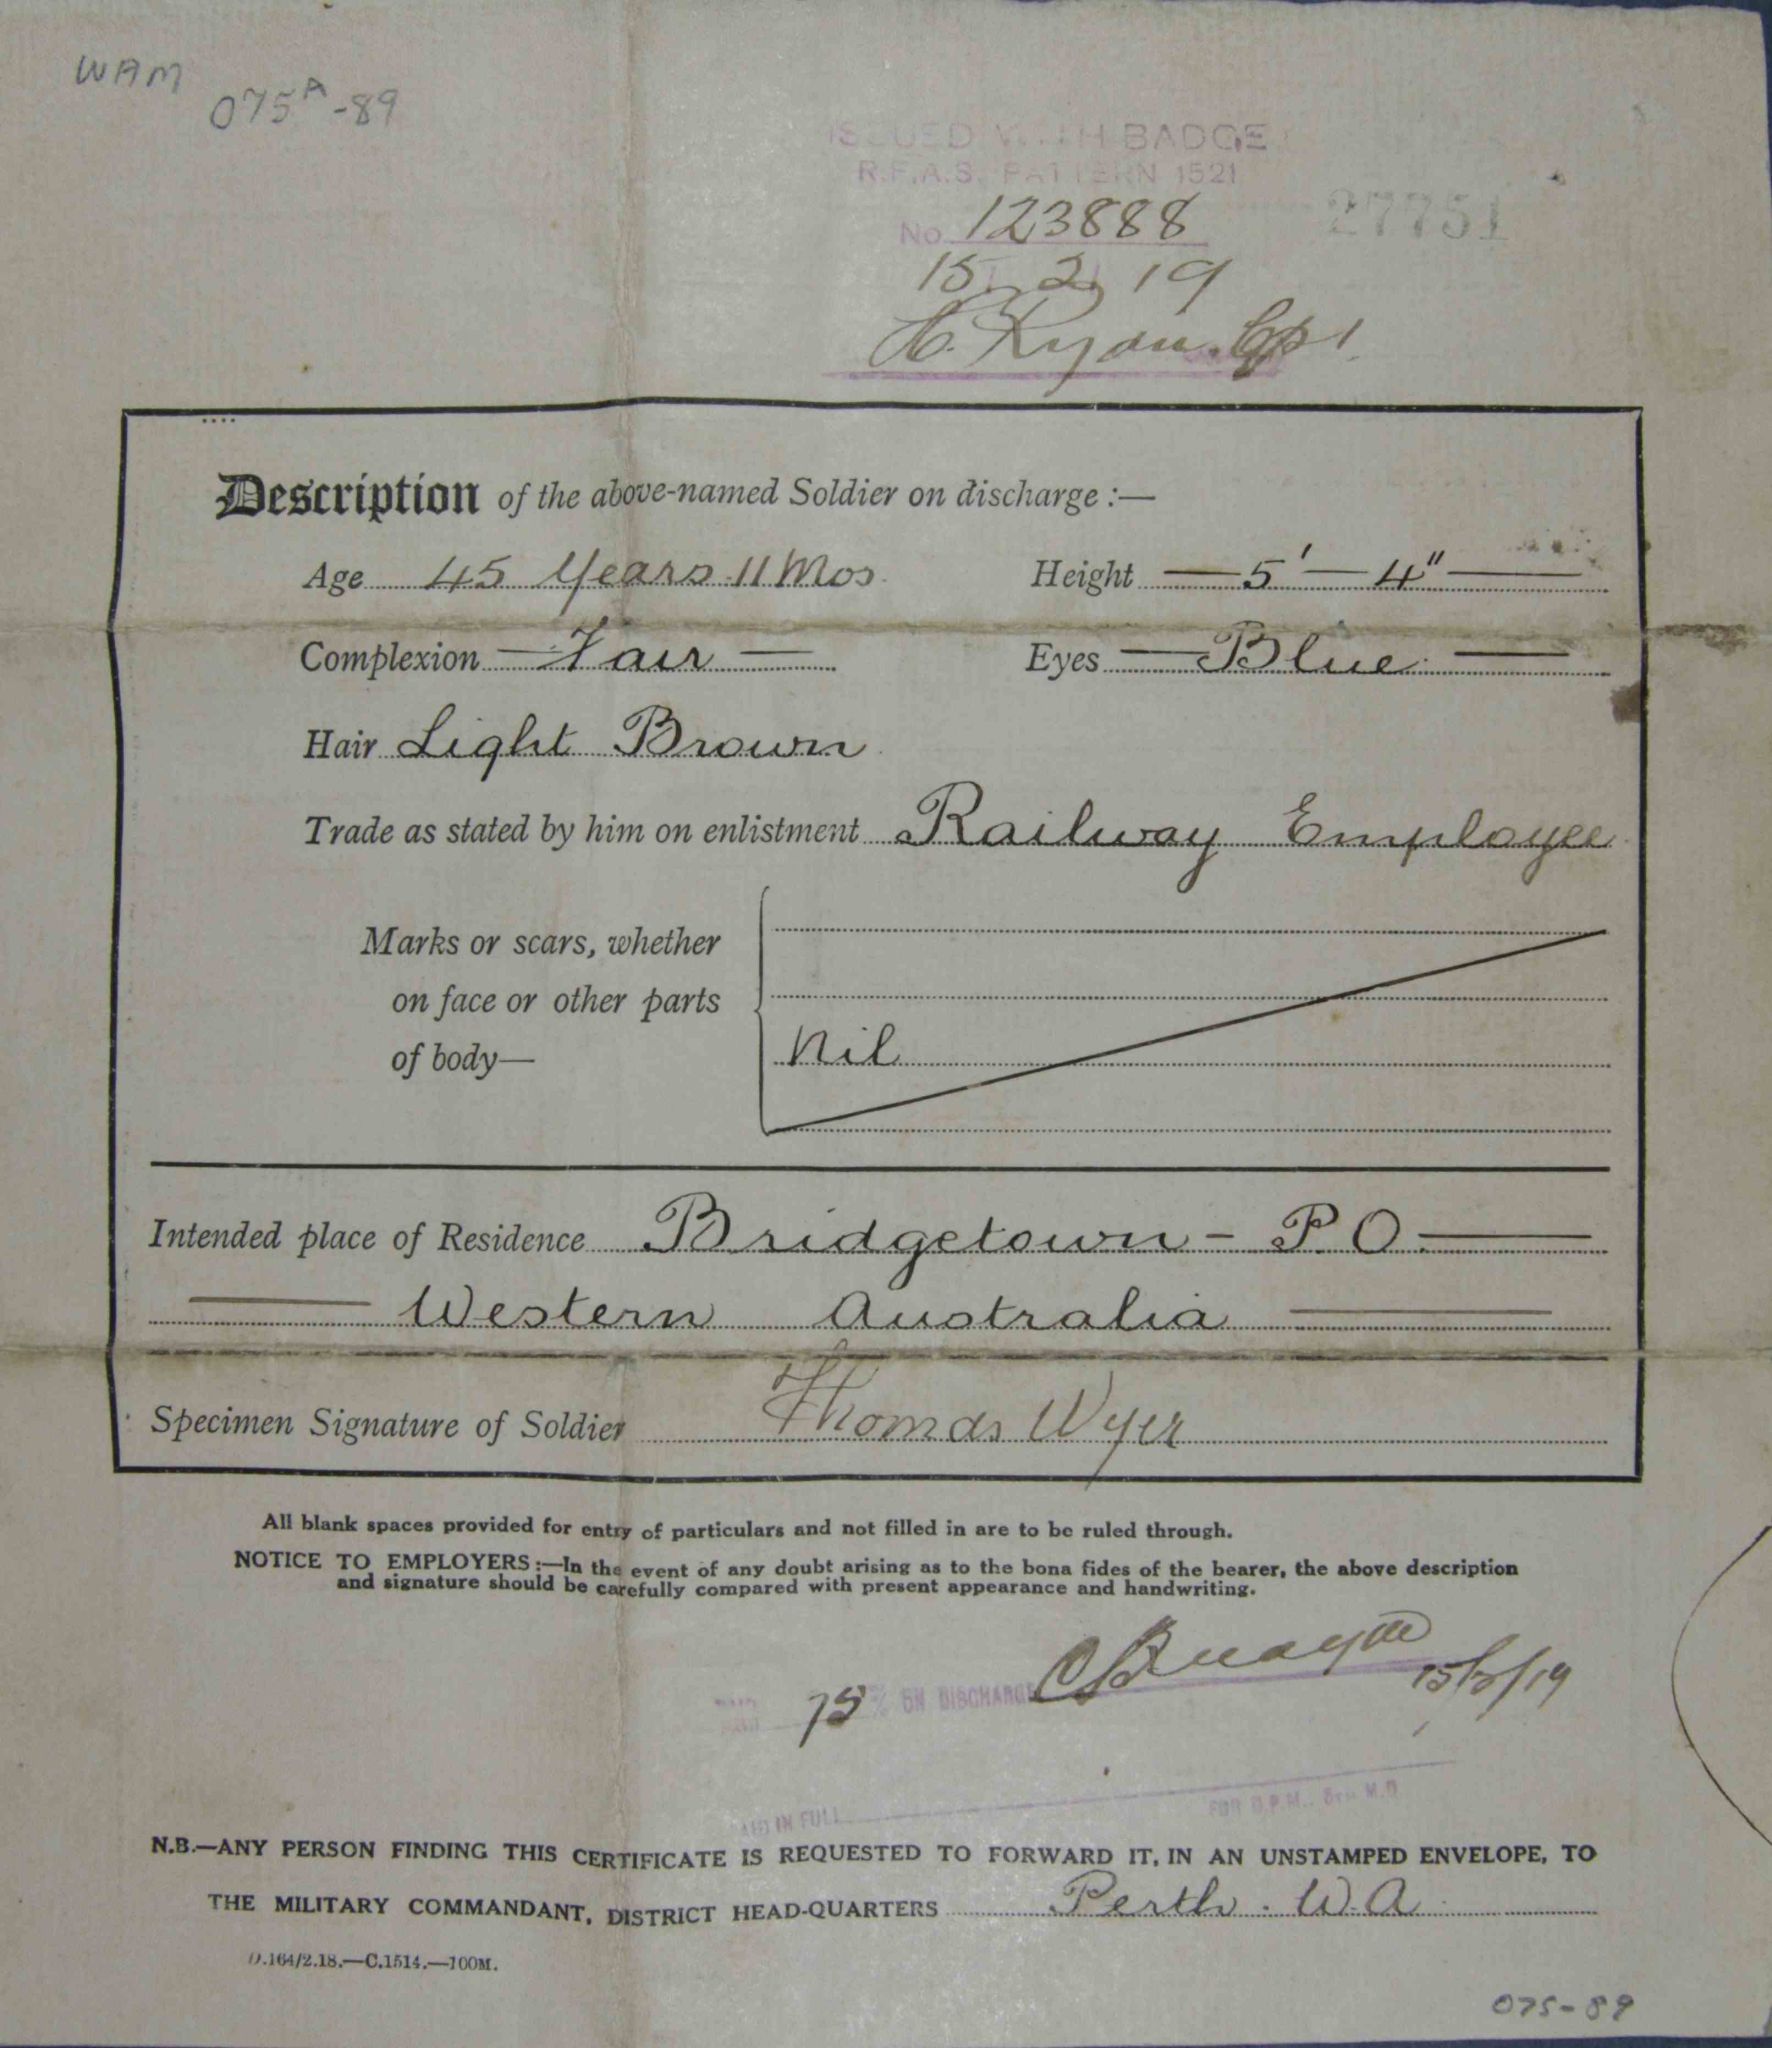 WAM
075A-89
ISSUED WITH BADGE
R.F.A.S. PATTERN 1521
No. 123888
27751
15. 2. 19
Ryan. Cpl
Description of the above-named Soldier on discharge :—
Age 45 Years 11 Mos. Height — 5' — 4" —
Complexion — Fair — Eyes — Blue —
Hair Light Brown
Trade as stated by him on enlistment Railway Employee
Marks or scars, whether
on face or other parts
of body— Nil
Intended place of Residence Bridgetown - P.O. —
— Western Australia —
Specimen Signature of Soldier Thomas Wyer
All blank spaces provided for entry of particulars and not filled in are to be ruled through.
NOTICE TO EMPLOYERS :—In the event of any doubt arising as to the bona fides of the bearer, the above description
and signature should be carefully compared with present appearance and handwriting.
75 % ON DISCHARGE 15/2/19
PAID IN FULL FOR D.P.M., 5TH M.D.
N.B.—ANY PERSON FINDING THIS CERTIFICATE IS REQUESTED TO FORWARD IT, IN AN UNSTAMPED ENVELOPE, TO
THE MILITARY COMMANDANT, DISTRICT HEAD-QUARTERS Perth. W.A.
D.164/2.18.—C.1514.—100M.
075-89